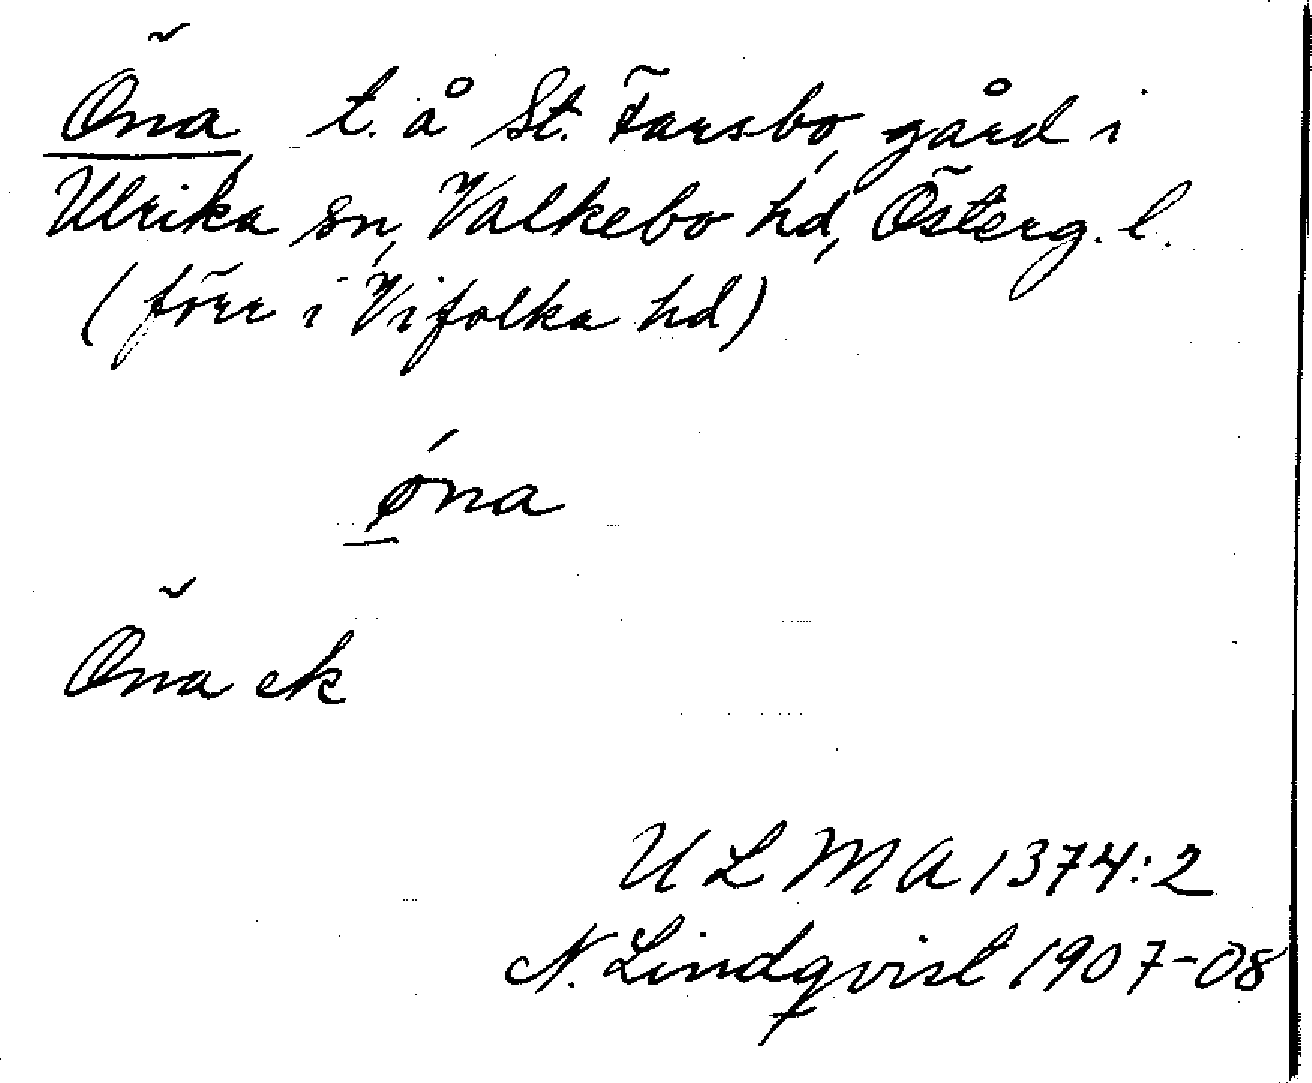 Öna t. å St. Farsbo, gård i
Ulrika sn, Valkebo hd, Österg. l.
(förr i Vifolka hd)
ǿna
Öna ek
ULMA 1374:2
N. Lindqvist 1907-08